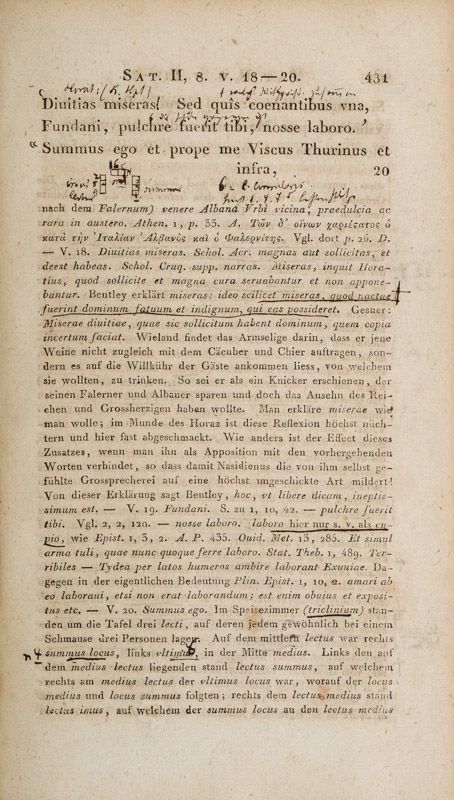 SAT. II, 8. v. 18—20. 431
Diuitias miseras! Sed quis coenantibus vna,
Fundani, pulchre fuerit tibi, nosse laboro.
Summus ego et prope me Viscus Thurinus et
infra, 20
nach dem Falernum) venere Albana Vrbi vicina, praedulcia ac
rara in austero. Athen. 1, p. 33. A. Τῶν δ' οἴνων χαριέστατος ὁ
κατὰ τὴν Ἰταλίαν Ἀλβανὸς καὶ ὁ Φαλερνίτης. Vgl. dort p. 26. D.
— V. 18. Diuitias miseras. Schol. Acr. magnas aut sollicitas, et
deest habeas. Schol. Cruq. supp. narras. Miseras, inquit Hora-
tius, quod sollicite et magna cura seruabantur et non appone-
bantur. Bentley erklärt miseras: ideo scilicet miseras, quod nactae
fuerint dominum fatuum et indignum, qui eas possideret. Gesner:
Miserae diuitiae, quae sic sollicitum habent dominum, quem copia
incertum faciat. Wieland findet das Armselige darin, dass er jene
Weine nicht zugleich mit dem Cäcuber und Chier auftragen, son-
dern es auf die Willkühr der Gäste ankommen liess, von welchem
sie wollten, zu trinken. So sei er als ein Knicker erschienen, der
seinen Falerner und Albaner sparen und doch das Ansehn des Rei-
chen und Grossherzigen haben wollte. Man erkläre miserae wie
man wolle; im Munde des Horaz ist diese Reflexion höchst nüch-
tern und hier fast abgeschmackt. Wie anders ist der Effect dieses
Zusatzes, wenn man ihn als Apposition mit den vorhergehenden
Worten verbindet, so dass damit Nasidienus die von ihm selbst ge-
fühlte Grossprecherei auf eine höchst ungeschickte Art mildert!
Von dieser Erklärung sagt Bentley, hoc, vt libere dicam, ineptis-
simum est. — V. 19. Fundani. S. zu 1, 10, 42. — pulchre fuerit
tibi. Vgl. 2, 2, 120. — nosse laboro. laboro hier nur s. v. als cu-
pio, wie Epist. 1, 3, 2. A. P. 435. Ouid. Met. 13, 285. Et simul
arma tuli, quae nunc quoque ferre laboro. Stat. Theb. 1, 489. Ter-
ribiles — Tydea per latos humeros ambire laborant Exuuiae. Da-
gegen in der eigentlichen Bedeutung Plin. Epist. 1, 10, 2. amari ab
eo laboraui, etsi non erat laborandum; est enim obuius et exposi-
tus etc. — V. 20. Summus ego. Im Speisezimmer (triclinium) stan-
den um die Tafel drei lecti, auf deren jedem gewöhnlich bei einem
Schmause drei Personen lagen. Auf dem mittlern lectus war rechts
summus locus, links vltimus, in der Mitte medius. Links den auf
dem medius lectus liegenden stand lectus summus, auf welchem
rechts am medius lectus der vltimus locus war, worauf der locus
medius und locus summus folgten; rechts dem lectus medius stand
lectus imus, auf welchem der summus locus an den lectus medius